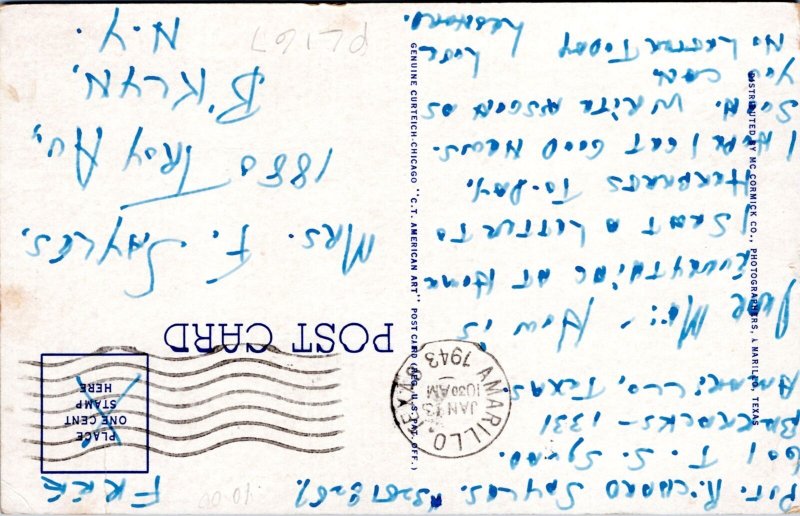 Pvt. Richard Sayles. (32518267)
601 T. S. Squad.
Barracks - 1331
Amarillo, Texas.
FREE
Dear Ma: How is
everything at home
I sent a letter to
Herbares To-day.
I hope I get good news.
Soon. Write as soon as
you can
Love
Richard.
No letter today
POST CARD
PLACE
ONE CENT
STAMP
HERE
AMARILLO, TEX.
JAN 13
1030 AM
1943
Mrs. F. Sayles.
1880 Troy Av.,
B'klyn,
N.Y.
GENUINE CURTEICH-CHICAGO "C.T. AMERICAN ART" POST CARD (REG. U.S. PAT. OFF.)
DISTRIBUTED BY MC CORMICK CO., PHOTOGRAPHERS, AMARILLO, TEXAS
PL167
10.00